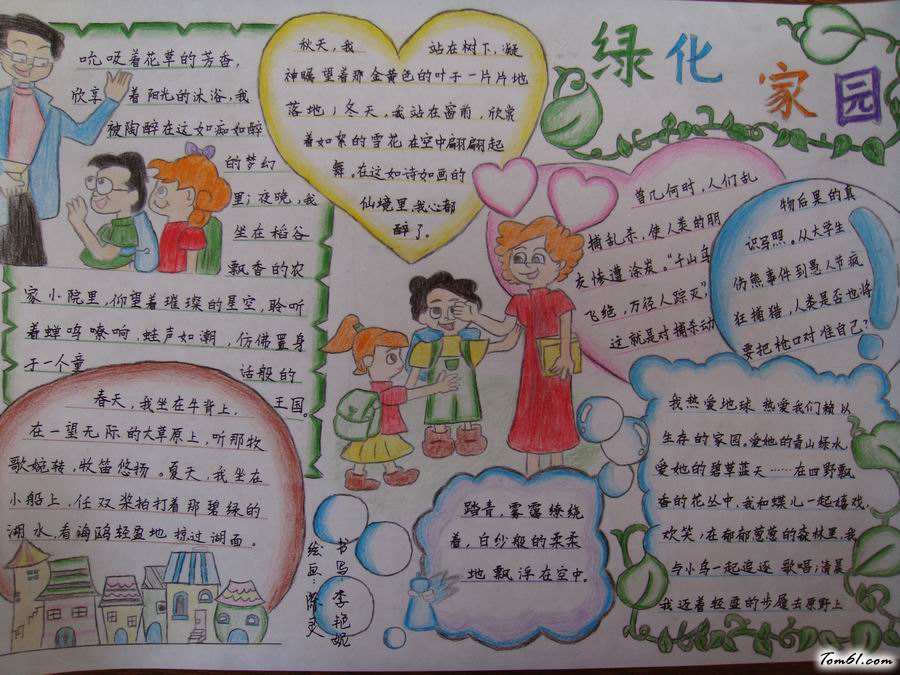 绿化家园
吮吸着花草的芳香，
欣享着阳光的沐浴，我
被陶醉在这如痴如醉
的梦幻
里；夜晚，我
坐在稻谷
飘香的农
家小院里，仰望着璀璨的星空，聆听
着蝉鸣嘹响，蛙声如潮，仿佛置身
于一个童话般的
王国。
秋天，我站在树下，凝
神瞩望着那金黄色的叶子一片片地
落地；冬天，我站在窗前，欣赏
着如絮的雪花在空中翩翩起
舞。在这如诗如画的
仙境里，我心都
醉了。
曾几何时，人们乱
捕乱杀，使人类的朋
友惨遭涂炭。“千山鸟
飞绝，万径人踪灭”，
这就是对捕杀动
物后果的真
识写照。从大学生
伤熊事件到愚人节疯
狂捕猎，人类是否也将
要把枪口对准自己？
春天，我坐在牛背上，
在一望无际的大草原上，听那牧
歌婉转，牧笛悠扬。夏天，我坐在
小船上，任双桨拍打着那碧绿的
湖水，看海鸥轻盈地掠过湖面。
书写：李艳妮
绘画：陈灵
踏青，雾霭缭绕
着，白纱般的柔柔
地飘浮在空中。
我热爱地球 热爱我们赖以
生存的家园。爱她的青山绿水，
爱她的碧草蓝天……在四野飘
香的花丛中，我和蝶儿一起嬉戏，
欢笑；在郁郁葱葱的森林里，我
与小鸟一起追逐 歌唱；清晨，
我迈着轻盈的步履去原野上
Tom61.com